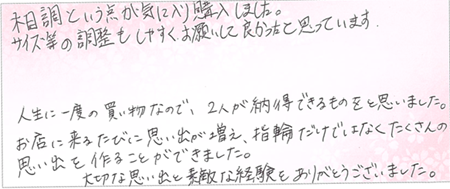 木目調という点が気に入り購入しました。
サイズ等の調整もしやすくお願いして良かったと思っています.
人生に一度の買い物なので、2人が納得できるものをと思いました。
お店に来るたびに思い出が増え、指輪だけではなくたくさんの
思い出を作ることができました。
大切な思い出と素敵な経験をありがとうございました。